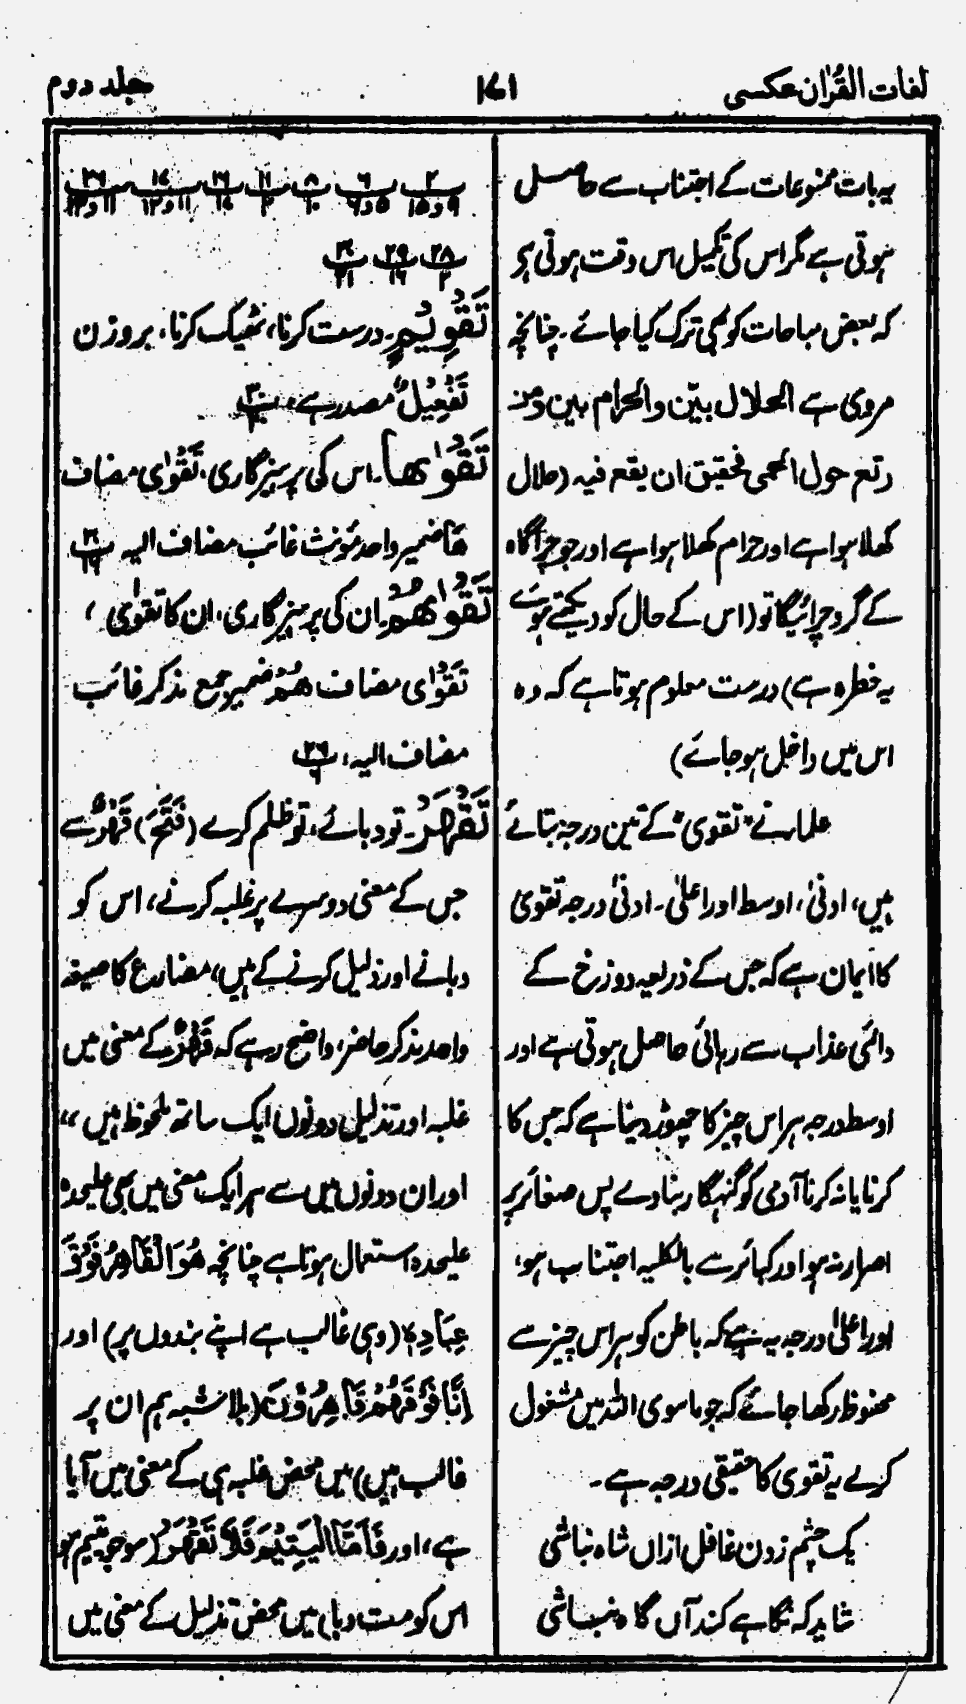 لغات القُرْاٰن عکسی
۱۷۱
جلد دوم
یہ بات ممنوعات کے اجتناب سے حاصل
ہوتی ہے مگر اس کی تکمیل اس وقت ہوتی ہو
کہ بعض مباحات کو بھی ترک کیا جائے۔ چنانچہ
مروی ہے الحلال بیّن والحرام بین ومن
رتع حول الحمی فحقیق ان یقع فیہ (حلال
کھلا ہوا ہے اور حرام کھلا ہوا ہے اور جو چراگاہ
کے گرد چرائیگا تو (اس کے حال کو دیکھتے ہوئے
یہ خطرہ ہے) درست معلوم ہوتا ہے کہ وہ
اس میں داخل ہو جائے)
علماء نے "تقوی" کے تین درجہ بتائے
ہیں، ادنیٰ، اوسط اور اعلیٰ۔ ادنیٰ درجہ تقویٰ
کا ایمان ہے کہ جس کے ذریعہ دوزخ کے
دائمی عذاب سے رہائی حاصل ہوتی ہے اور
اوسط درجہ ہر اس چیز کا چھوڑ دینا ہے کہ جس کا
کرنا یا نہ کرنا آدمی کو گنہگار بنا دے پس صغائر پر
اصرار نہ ہو اور کبائر سے بالکلیہ اجتناب ہو،
اور اعلیٰ درجہ یہ ہے کہ باطن کو ہر اس چیز سے
محفوظ رکھا جائے کہ جو ماسوی اللہ میں مشغول
کرے یہ تقوی کا حقیقی درجہ ہے۔
یک چشم زدن غافل ازاں شاہ نباشی
شاید کہ نگاہے کند آں گاہ نباشی
پ۲ ۹ و ۱۵ پ۶ ۵ و ۶ پ۸ ۱۰ پ۱۱ ۲ پ۱۶ ۱۷ پ۱۷ ۱۱ و ۱۲ پ۲۶ ۱۱ و ۱۳
پ۲۸ ۲ پ۲۹ ۱۶ پ۳۰ ۲۱
تَقْوِیْمٍ۔ درست کرنا، ٹھیک کرنا، بروزن
تَفْعِیْلٌ مصدر ہے، پ۳۰
تَقْوٰىھَا۔ اس کی پرہیزگاری، تَقْوٰی مضاف
ھَا ضمیر واحد مؤنث غائب مضاف الیہ پ۳۰ ۱۶
تَقْوٰىھُمْ۔ ان کی پرہیزگاری، ان کا تقویٰ،
تَقْوٰی مضاف ھُمْ ضمیر جمع مذکر غائب
مضاف الیہ، پ۲۶
تَقْھَرْ۔ تو دبائے، تو ظلم کرے (فَتَحَ) قَھْرٌ سے
جس کے معنی دوسرے پر غلبہ کرنے، اس کو
دبانے اور ذلیل کرنے کے ہیں، مضارع کا صیغہ
واحد مذکر حاضر، واضح رہے کہ قَھْرٌ کے معنی میں
غلبہ اور تذلیل دونوں ایک ساتھ ملحوظ ہیں،،
اور ان دونوں میں سے ہر ایک معنی میں بھی علیحدہ
علیحدہ استعمال ہوتا ہے چنانچہ ھُوَ الْقَاھِرُ فَوْقَ
عِبَادِہٖ (وہی غالب ہے اپنے بندوں پر) اور
اِنَّا فَوْقَھُمْ قَاھِرُوْنَ (بلا شبہ ہم ان پر
غالب ہیں) میں محض غلبہ ہی کے معنی میں آیا
ہے، اور فَاَمَّا الْیَتِیْمَ فَلَا تَقْھَرْ (سو جو یتیم ہو
اس کو مت دبا) میں محض تذلیل کے معنی میں